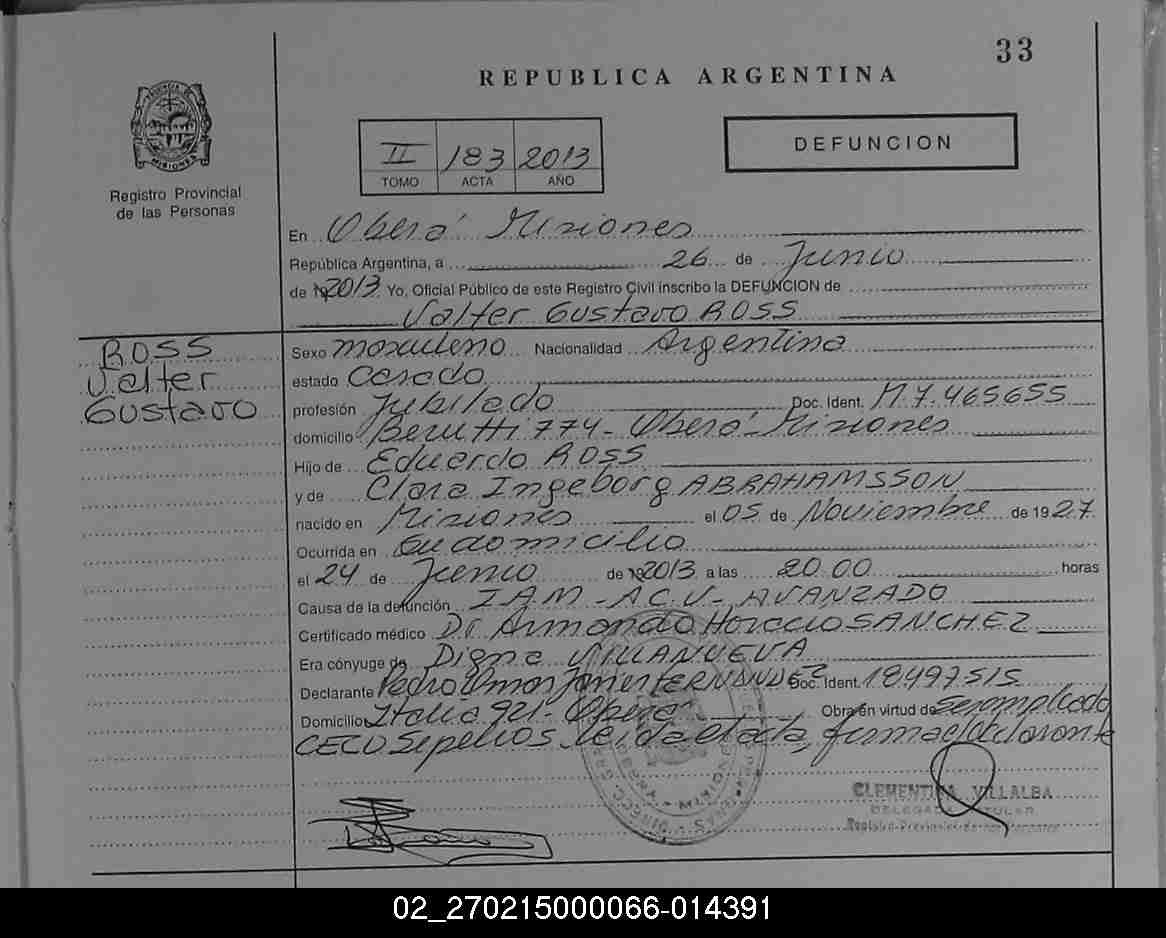 33
REPUBLICA ARGENTINA
II 183 2013
TOMO ACTA AÑO
DEFUNCION
PROVINCIA DE MISIONES
Registro Provincial
de las Personas
En Oberá Misiones
República Argentina, a 26 de Junio
de 2013 Yo, Oficial Público de este Registro Civil inscribo la DEFUNCION de
Valter Gustavo ROSS
ROSS
Valter
Gustavo
Sexo masculino Nacionalidad Argentina
estado Casado
profesión Jubilado Doc. Ident. M 7.465655
domicilio Berutti 774 - Oberá - Misiones
Hijo de Eduardo ROSS
y de Clara Ingeborg ABRAHAMSSON
nacido en Misiones el 05 de Noviembre de 1927
Ocurrida en Su domicilio
el 24 de Junio de 2013 a las 20.00 horas
Causa de la defunción I.A.M - A.C.V - AVANZADO
Certificado médico Dr Armando Horacio SANCHEZ
Era cónyuge de Digna VILLANUEVA
Declarante Pedro Omar Javier FERNANDEZ Doc. Ident. 18497515
Domicilio Italia 921 - Oberá Obra en virtud de ser empleado
CECO Sepelios leida el acta, firma el declarante
CLEMENTINA VILLALBA
DELEGADA TITULAR
Registro Provincial de las Personas
02_270215000066-014391